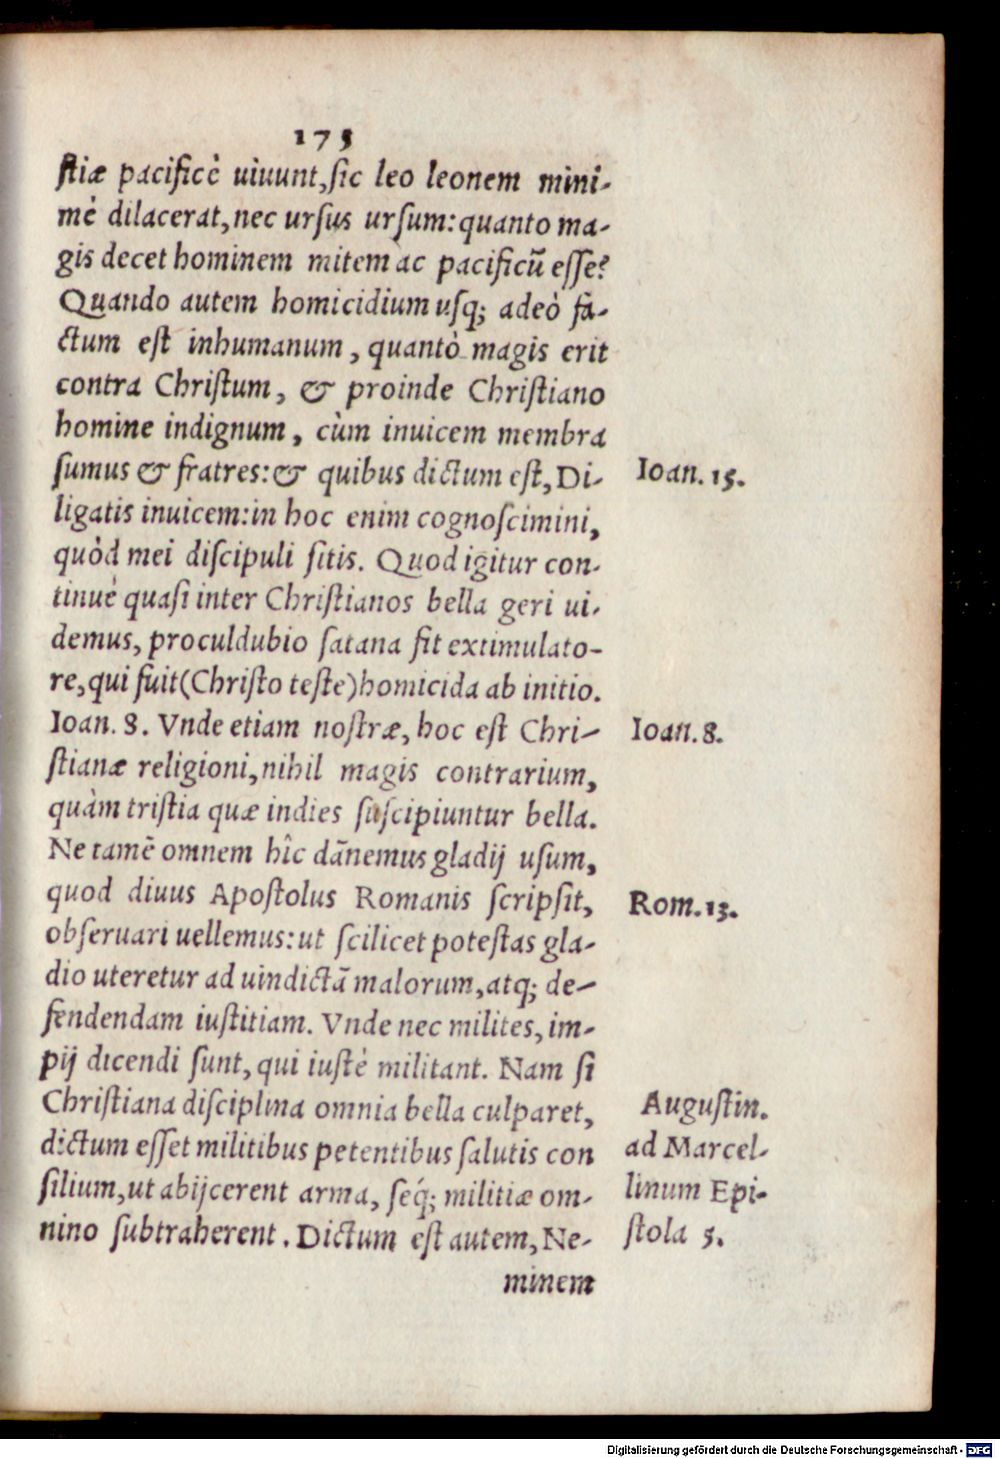 175
stiæ pacificè uiuunt, sic leo leonem mini-
mè dilacerat, nec ursus ursum: quanto ma-
gis decet hominem mitem ac pacificū esse?
Quando autem homicidium usq; adeò fa-
ctum est inhumanum, quantò magis erit
contra Christum, & proinde Christiano
homine indignum, cùm inuicem membra
sumus & fratres: & quibus dictum est, Di-
Ioan. 15.
ligatis inuicem: in hoc enim cognoscimini,
quòd mei discipuli sitis. Quod igitur con-
tinuè quasi inter Christianos bella geri ui-
demus, proculdubio satana fit extimulato-
re, qui fuit (Christo teste) homicida ab initio.
Ioan. 8. Vnde etiam nostræ, hoc est Chri-
Ioan. 8.
stianæ religioni, nihil magis contrarium,
quàm tristia quæ indies suscipiuntur bella.
Ne tamē omnem hîc dānemus gladij usum,
quod diuus Apostolus Romanis scripsit,
Rom. 13.
obseruari uellemus: ut scilicet potestas gla-
dio uteretur ad uindictā malorum, atq; de-
fendendam iustitiam. Vnde nec milites, im-
pij dicendi sunt, qui iustè militant. Nam si
Christiana disciplina omnia bella culparet,
Augustin.
dictum esset militibus petentibus salutis con
ad Marcel-
silium, ut abijcerent arma, seq́; militiæ om-
linum Epi-
nino subtraherent. Dictum est autem, Ne-
stola 5.
minem
Digitalisierung gefördert durch die Deutsche Forschungsgemeinschaft - DFG